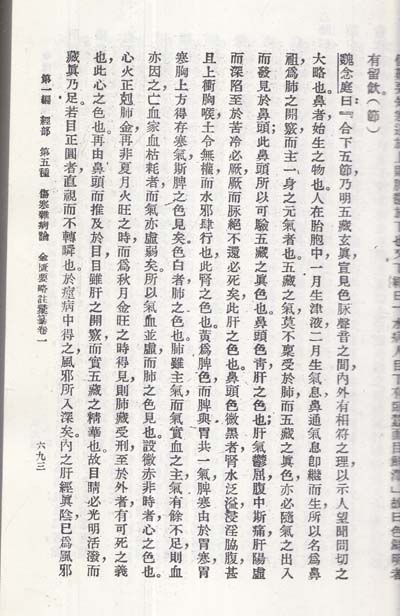 有留飲(節)
魏念庭曰『合下五節乃明五藏玄眞宣見色詠聲音之間內外有相符之理以示人望聞問切之
大略也。鼻者始生之物也。人在胎胞中一月生津液二月生氣息鼻通氣息卽繼而生所以名爲鼻
祖爲肺之開竅而主一身之元氣者也。五藏之氣莫不稟受於肺而五藏之眞色亦必隨氣之出入
而發見於鼻頭此鼻頭所以可驗五藏之眞色也。鼻頭色靑肝之色也;肝氣鬱屈腹中斯痛肝陽虛
而深陷至於苦冷必厥厥而脈絕不還必死矣此肝之色也。鼻頭色微黑者腎水泛溢浸淫脇腹甚
且上衝胸喉土令無權而水邪肆行也此腎之色也。黃爲脾色而脾與胃共一氣脾寒由於胃寒胃
寒胸上方得存寒氣斯脾之色見矣。色白者肺之色也。肺雖主氣而氣實血之主氣有餘不足則血
亦因之亡血家血枯耗者而氣亦虛弱矣。所以氣血並虛而肺之色見也。設微赤非時者心之色也。
心火正剋肺金再非夏月火旺之時而爲秋月金旺之時得見則肺藏受刑至於外者有可死之義
也此心之色也。再由鼻頭而推及於目目雖肝之開竅而實五藏之精華也。故目睛必光明活潑而
藏眞乃足。若目正圓者直視而不轉瞬也。於痙病中得之風邪所入深矣。內之肝經眞陰已爲風邪
第一編 經部 第五種 傷寒雜病論 金匱要略註彙纂卷一
六九三